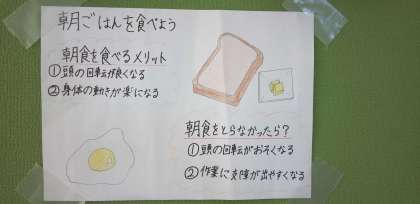 朝ごはんを食べよう
朝食を食べるメリット
①頭の回転が良くなる
②身体の動きが楽になる
朝食をとらなかったら?
①頭の回転がおそくなる
②作業に支障が出やすくなる